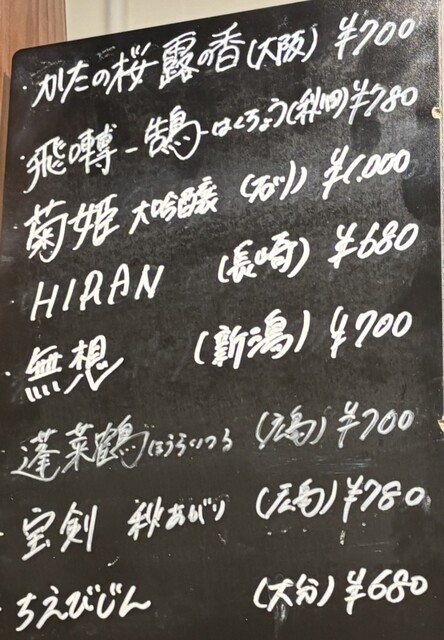 かたの桜 露の香(大阪) ¥700
飛囀 -鵠- はくちょう(秋田) ¥780
菊姫 大吟醸 (石川) ¥1,000
HIRAN (長崎) ¥680
無想 (新潟) ¥700
蓬莱鶴 ほうらいつる (広島) ¥700
宝剣 秋あがり (広島) ¥780
ちえびじん (大分) ¥680